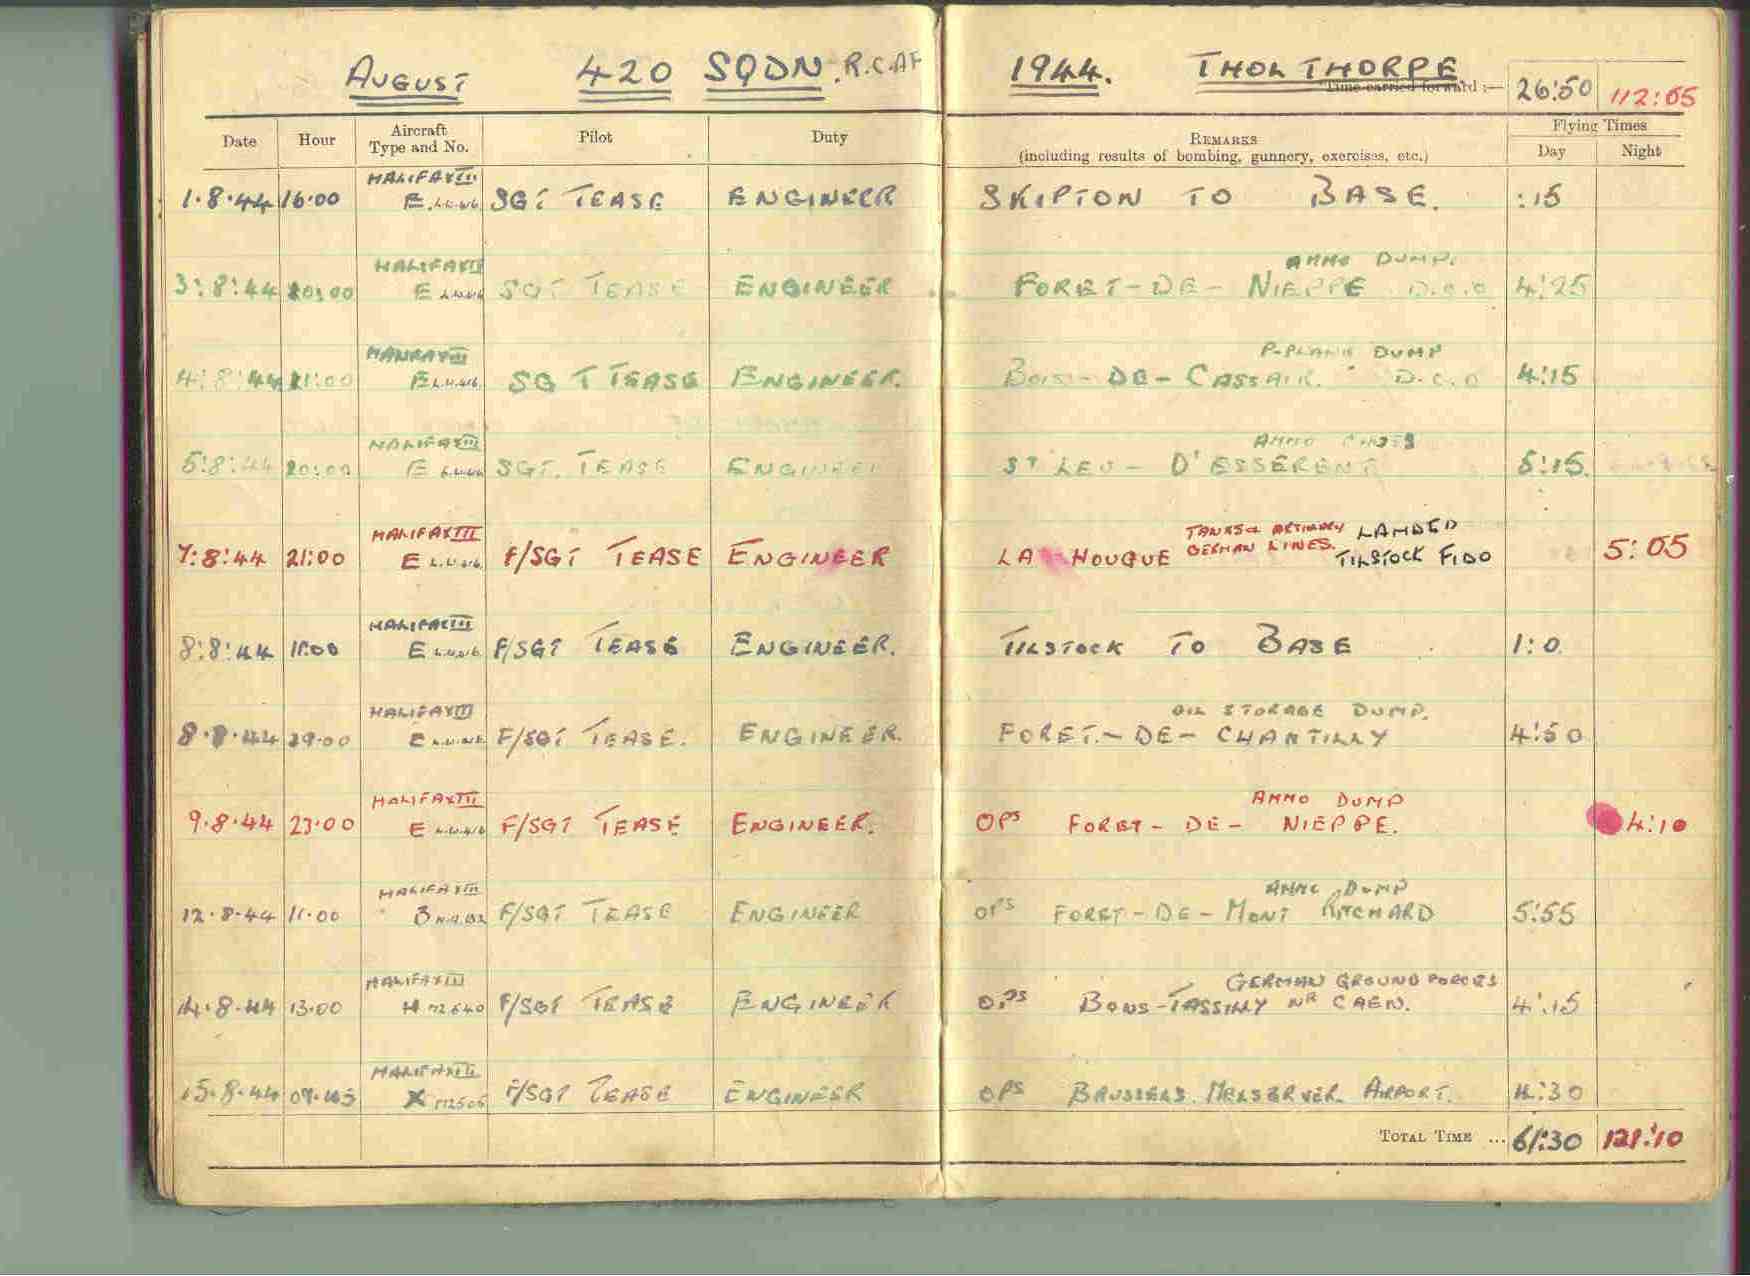 AUGUST 420 SQDN. R.C.AF 1944. THOLTHORPE
Time carried forward :— 26:50 112:05
Date Hour Aircraft Type and No. Pilot Duty REMARKS (including results of bombing, gunnery, exercises, etc.) Flying Times Day Night
HALIFAX III
1.8.44 16.00 E SGT TEASE ENGINEER SKIPTON TO BASE. :15
HALIFAX III AMMO DUMP.
3:8:44 E SGT TEASE ENGINEER FORET-DE-NIEPPE D.C.O 4:25
III DUMP
4:8:44 E SGT TEASE ENGINEER. BOIS-DE- D.C.O 4:15
HALIFAX III AMMO
5:8:44 E SGT. TEASE ENGINEER ST LEU- D'ESSERENT 5:15.
HALIFAX III TANKS & ARTILLERY LANDED
7:8:44 21:00 E F/SGT TEASE ENGINEER LA HOUGUE GERMAN LINES. TILSTOCK FIDO 5:05
HALIFAX III
8:8:44 11:00 E F/SGT TEASE ENGINEER. TILSTOCK TO BASE 1:0.
HALIFAX III OIL STORAGE DUMP.
8.8.44 E F/SGT TEASE. ENGINEER. FORET.-DE-CHANTILLY 4:50
HALIFAX III AMMO DUMP
9.8.44 23:00 E F/SGT TEASE ENGINEER. OPS FORET-DE-NIEPPE. 4:10
HALIFAX III AMMO DUMP
12.8.44 11.00 F/SGT TEASE ENGINEER OPS FORET-DE-MONT RICHARD 5:55
HALIFAX III GERMAN GROUND FORCES
14.8.44 13.00 H F/SGT TEASE ENGINEER OPS BONS-TASSILLY NR CAEN. 4:15
HALIFAX III
15.8.44 X F/SGT TEASE ENGINEER OPS BRUSSELS. AIRPORT. 4:30
TOTAL TIME ... 61:30 121:10